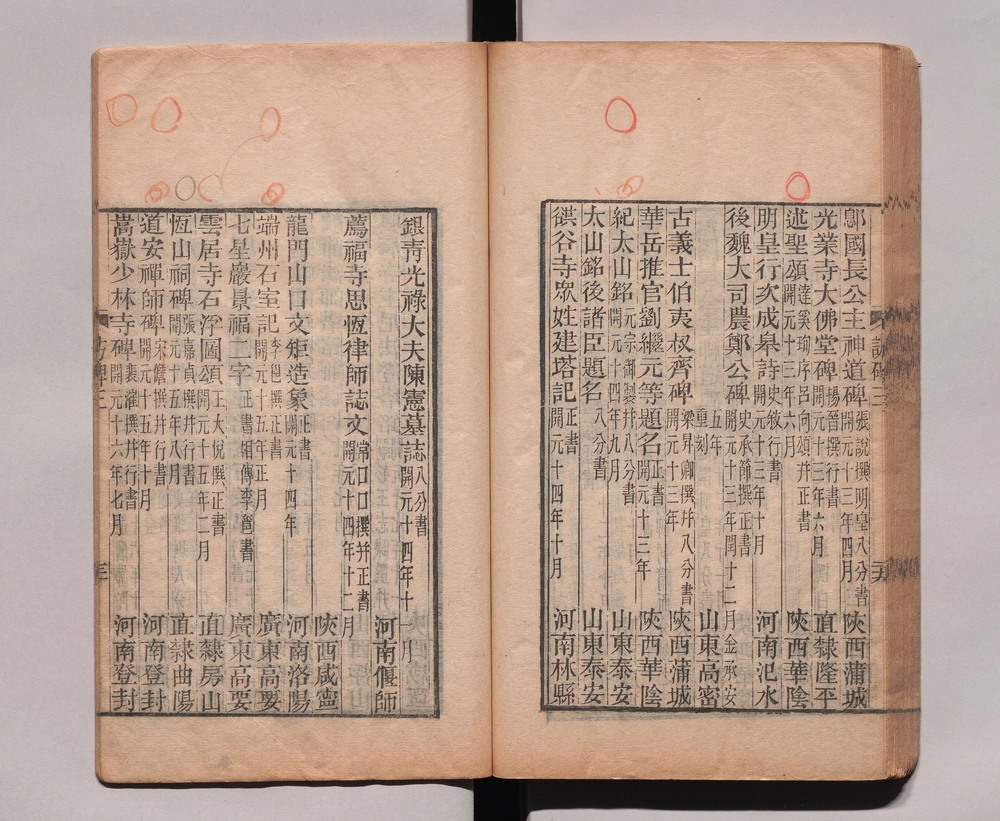 鄎國長公主神道碑 張說撰明皇八分書 開元十三年四月 陝西蒲城
光業寺大佛堂碑 楊晉撰行書 開元十三年六月 直隸隆平
述聖頌 達奚珣序呂向頌并正書 開元十三年六月 陝西華陰
明皇行次成皋詩 史敘行書 開元十三年十月 河南汜水
後魏大司農鄭公碑 史承節撰正書 開元十三年閏十二月金承安五年重刻 山東高密
古義士伯夷叔齊碑 梁昇卿撰并八分書 開元十三年 陝西蒲城
華岳推官劉繼元等題名 正書 開元十三年 陝西華陰
紀太山銘 元宗御製并八分書 開元十四年九月 山東泰安
太山銘後諸臣題名 八分書 山東泰安
㵎谷寺眾姓建塔記 正書 開元十四年十月 河南林縣
銀青光祿大夫陳憲墓誌 八分書 開元十四年十月 河南偃師
薦福寺思恆律師誌文 常口口撰并正書 開元十四年十二月 陝西咸寧
龍門山口文矩造象 正書 開元十四年 河南洛陽
端州石室記 李邕撰正書 開元十五年正月 廣東高要
七星巖景福二字 正書相傳李邕書 廣東高要
雲居寺石浮圖頌 王大悅撰正書 開元十五年二月 直隸房山
恆山祠碑 張嘉貞撰并行書 開元十五年八月 直隸曲陽
道安禪師碑 宋儋撰并行書 開元十五年十月 河南登封
嵩嶽少林寺碑 裴漼撰并行書 開元十六年七月 河南登封